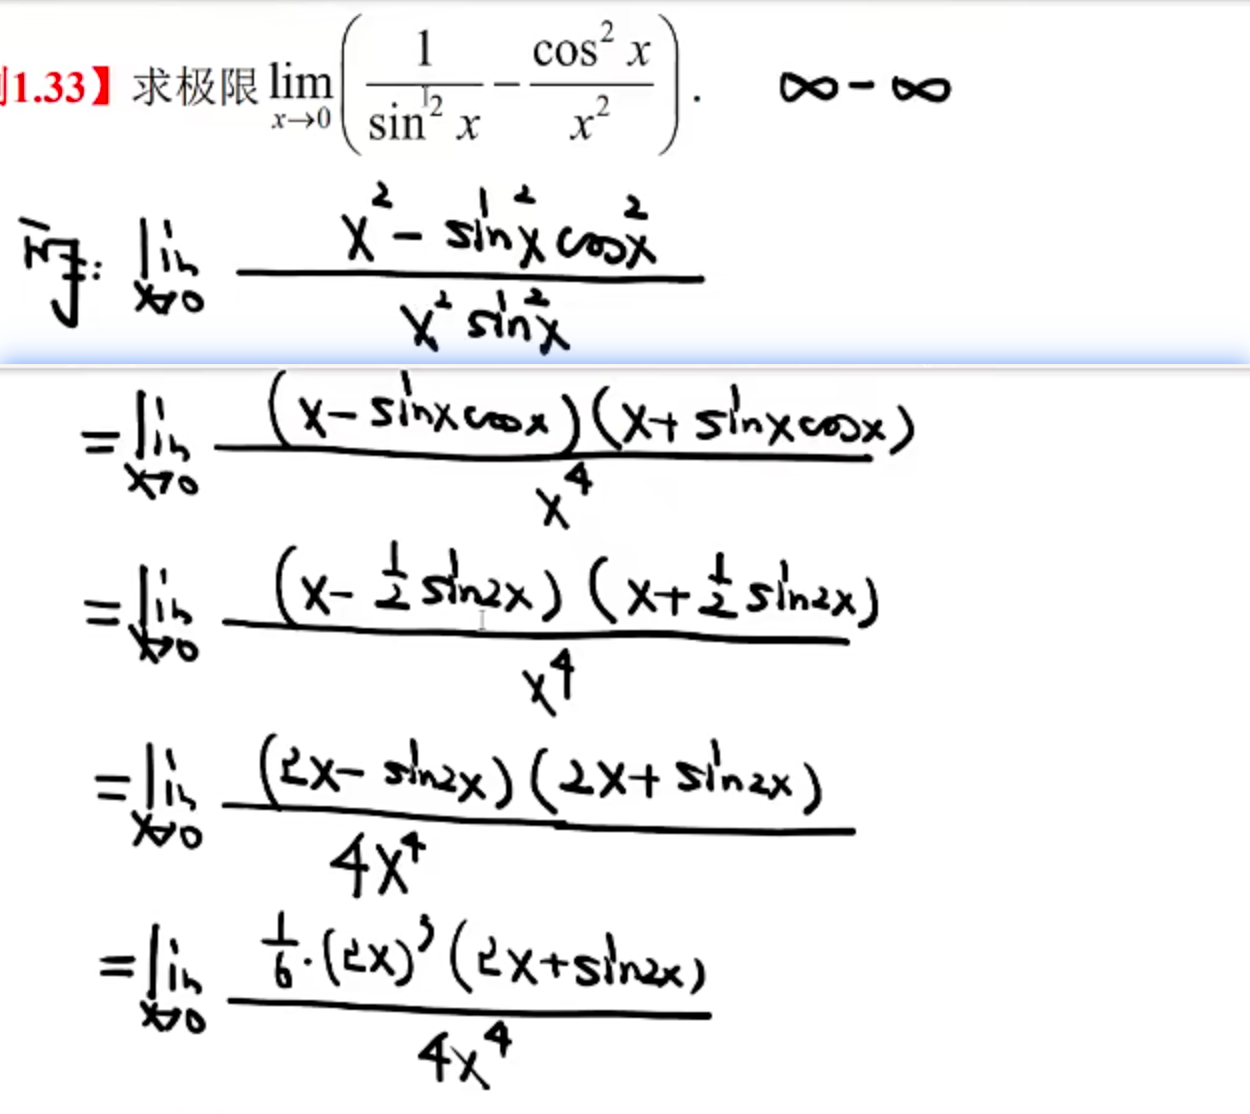 1.33】求极限 lim x→0 ( 1/sin² x − cos² x/x² ) . ∞ − ∞
原式: lim x→0 (x² − sin²x cos²x)/(x² sin²x)
= lim x→0 (x − sinxcosx)(x + sinxcosx)/x⁴
= lim x→0 (x − 1/2 sin2x)(x + 1/2 sin2x)/x⁴
= lim x→0 (2x − sin2x)(2x + sin2x)/4x⁴
= lim x→0 1/6·(2x)³(2x + sin2x)/4x⁴